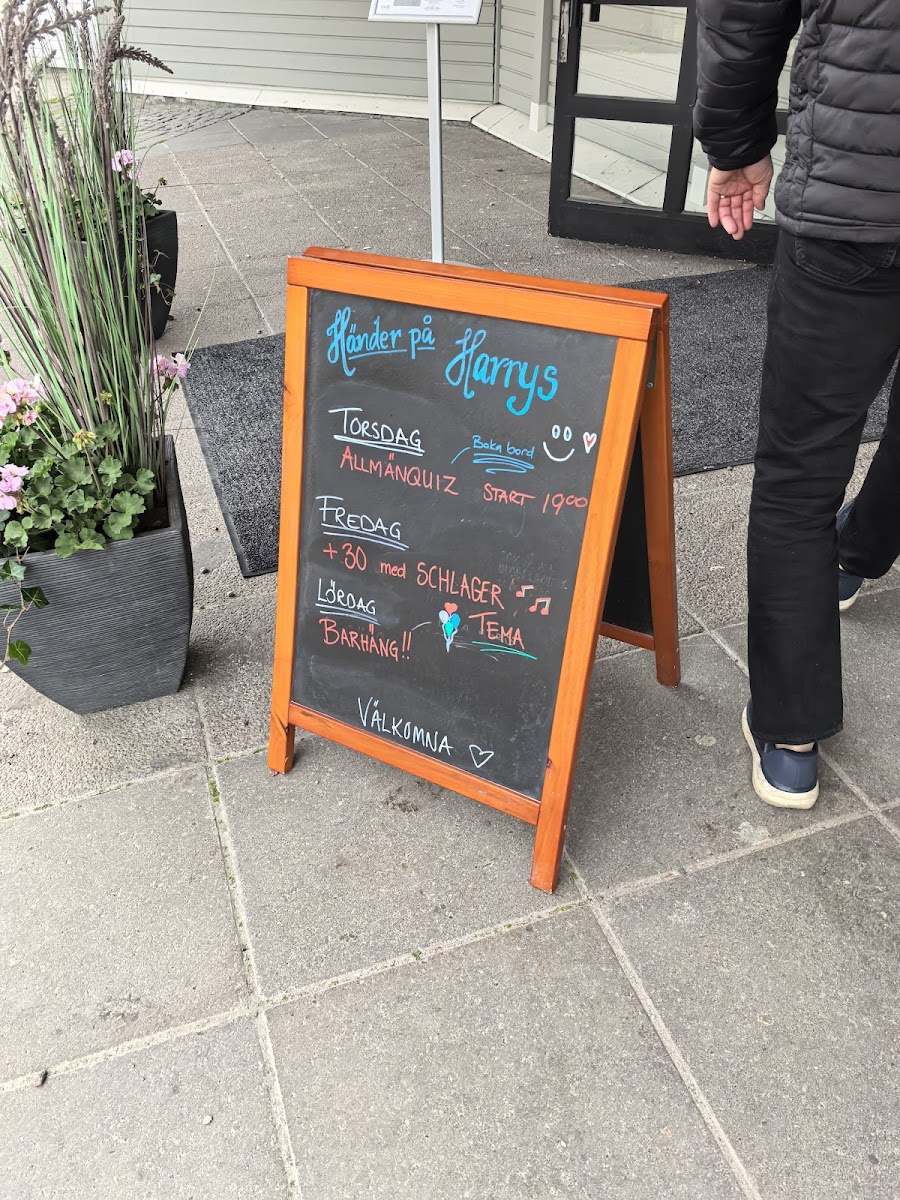 Händer på Harrys
TORSDAG Boka bord
ALLMÄNQUIZ START 1900
FREDAG
+30 med SCHLAGER
TEMA
LÖRDAG
BARHÄNG!!
VÄLKOMNA